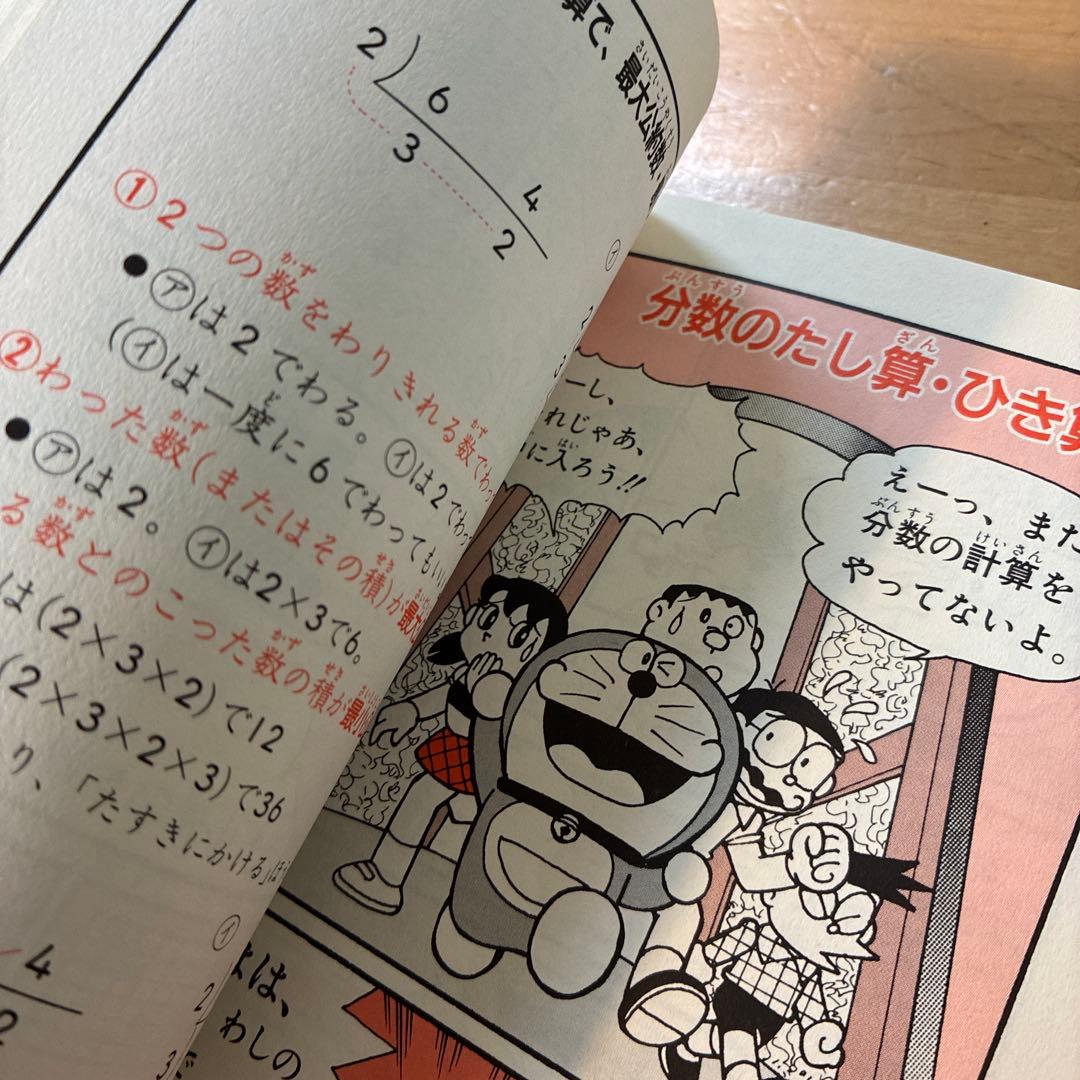 算で、最大公約数・
2）6 4
3 2
①2つの数をわりきれる数でわっ
●㋐は2でわる。㋑は2でわっ
(㋑は一度に6でわってもいい
②わった数(またはその積)が最大
●㋐は2。㋑は2×3で6。
る数とのこった数の積が最
は(2×3×2)で12
(2×3×2×3)で36
り、「たすきにかける」は
4
2
㋑
分数のたし算・ひき算
ーし、
れじゃあ、
に入ろう!!
えーっ、まだ
分数の計算を
やってないよ。
は、
わしの